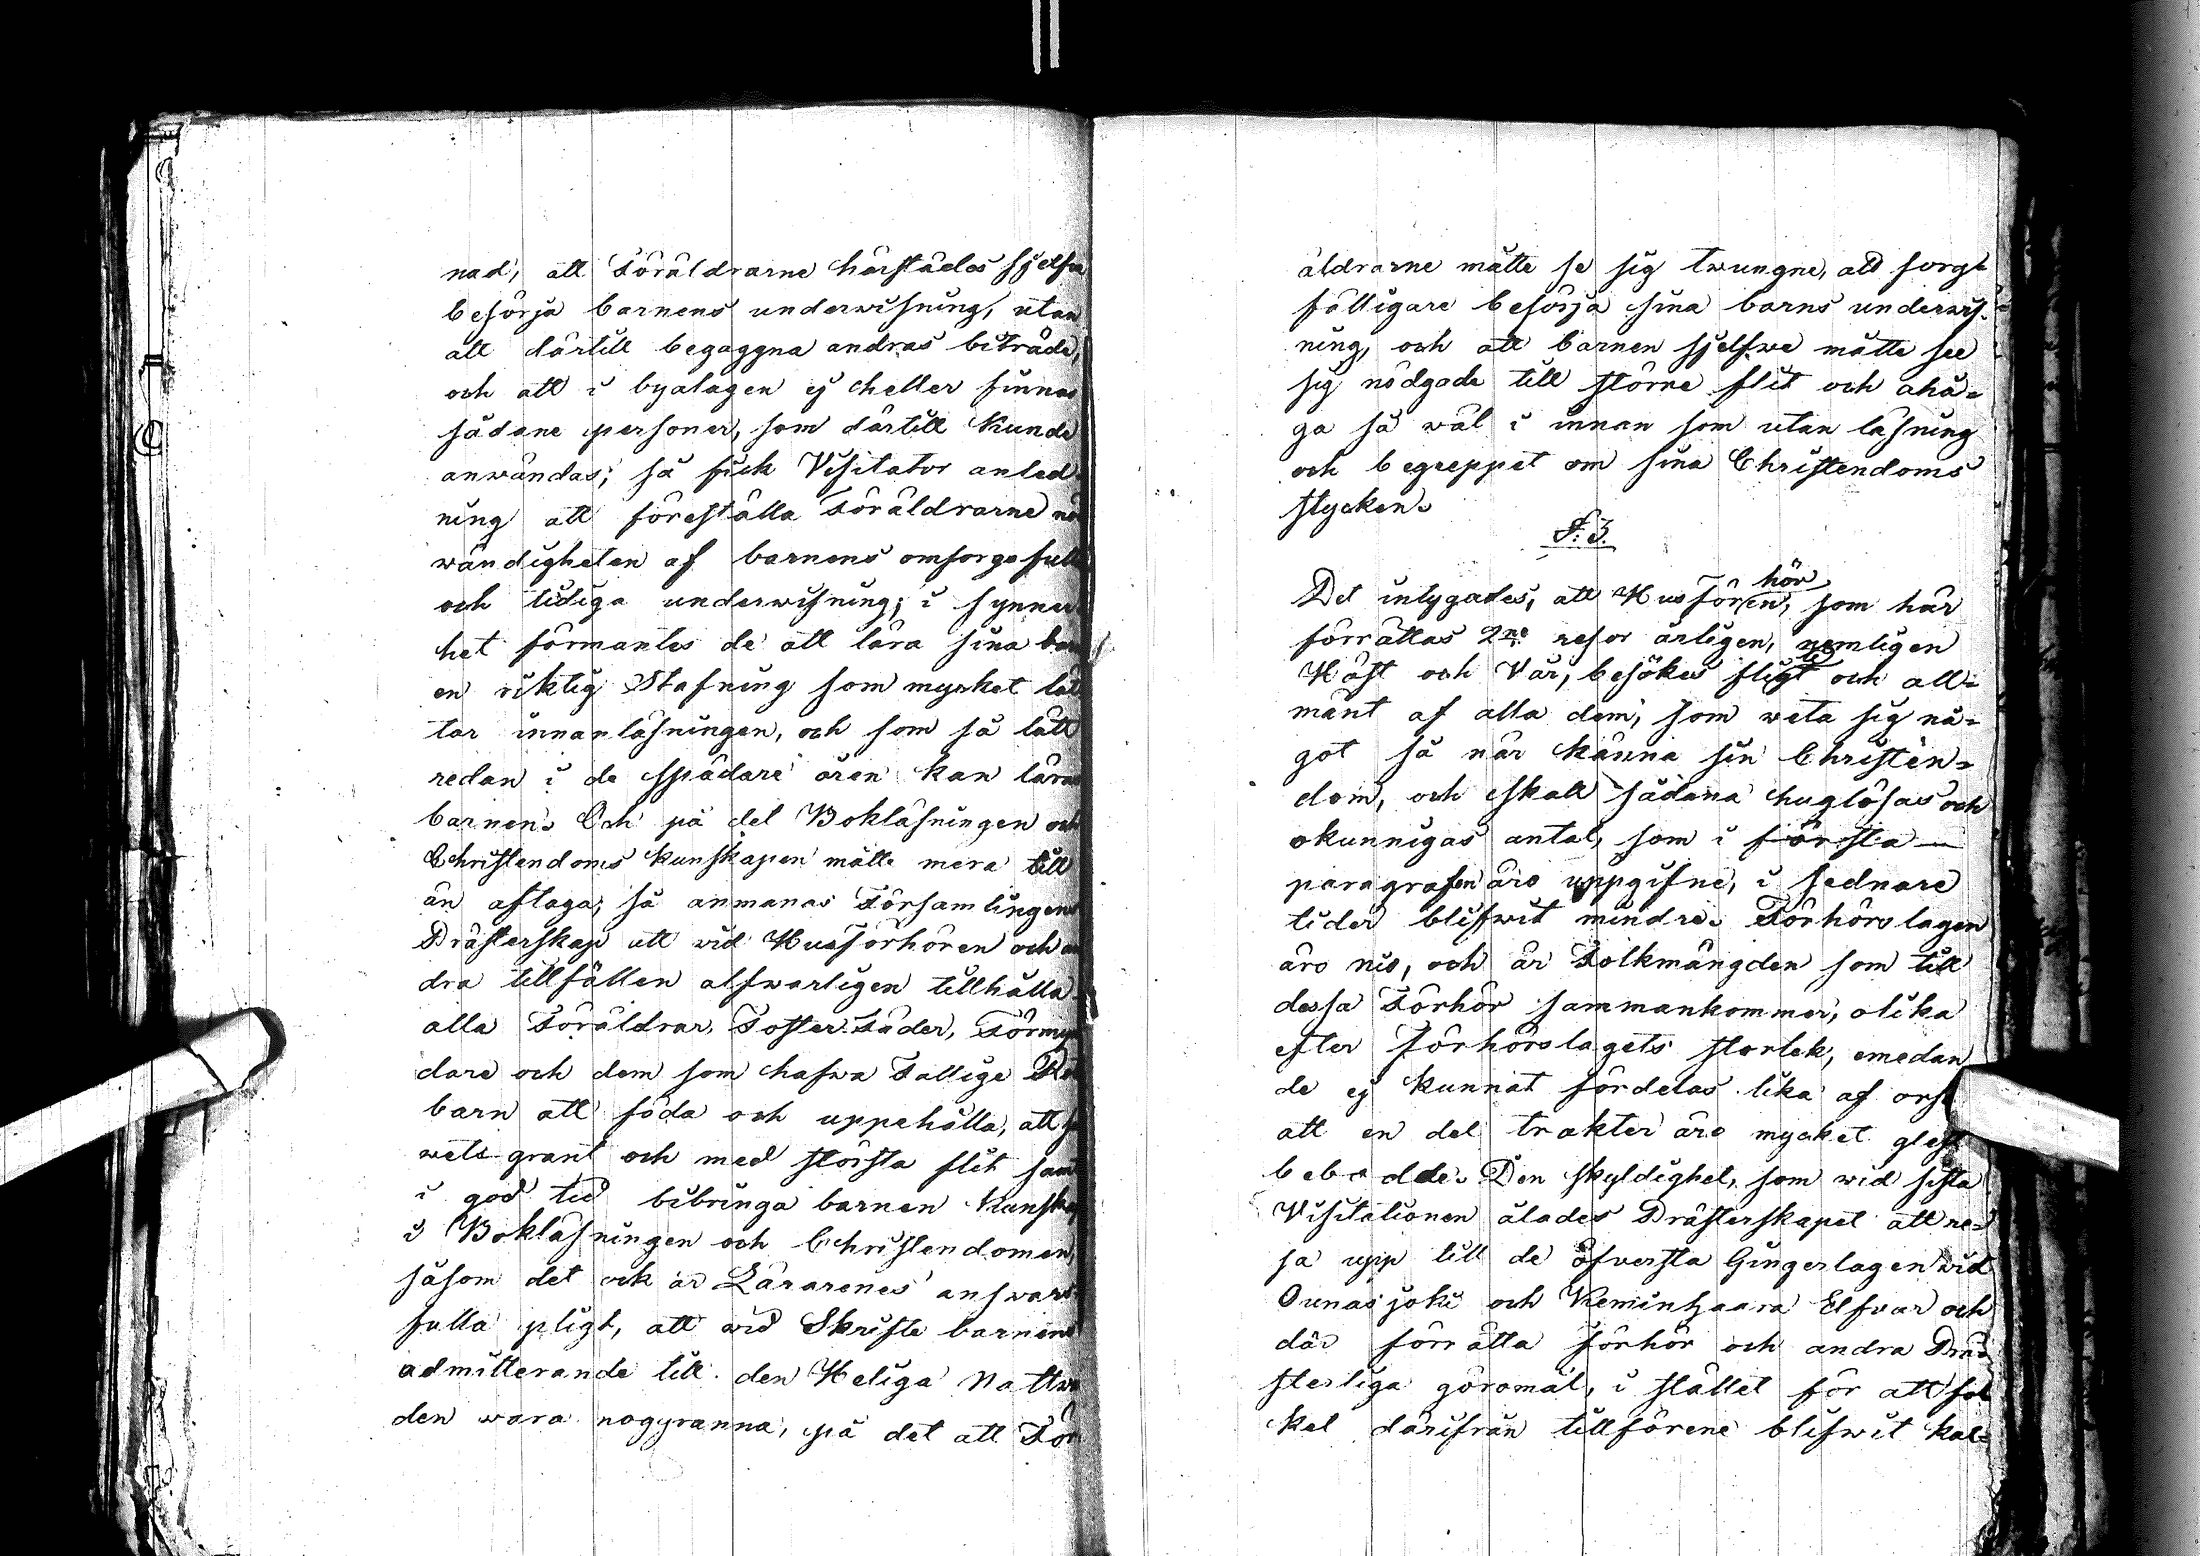 nad, att Föräldrarne härstädes sjelfva
besörja barnens underwisning, utan
att därtill begaggna andras biträde,
och att i byalagen ej heller finnas
sådane personer, som därtill kunde
anwändas; så fick Visitator anled-
ning att föreställa Föräldrarne nö
wändigheten af barnens omsorgsfulla
och tidiga underwisning; i synner-
het förmantes de att lära sina barn
en riktig Stafning som mycket lät
tar innanläsningen, och som så lätt
redan i de spädare åren kan läras
barnen. Och på det Bokläsningen och
Christendoms kunskapen måtte mera till
än aftaga, så anmanas Församlingens
Prästerskap att vid Husförhören och an
dra tillfällen alfwarligen tillhålla
alla Föräldrar, Foster-Fäder, Förmyn
dare och dem som hafwa Fattige
barn att föda och uppehålla, att
wets grant och med största flit samt
i god tid bibringa barnen Kunskap
i Bokläsningen och Christendomen,
såsom det ock är Lärarenes answars-
fulla pligt, att wid Skrifte barnens
admitterande till den Heliga Nattwa
den wara nogyranna, på det att För
äldrarne måtte se sig twungne, att sorg-
fälligare besörja sina barns underwis-
ning, och att barnen sjelfwe måtte see
sig nödgade till större flit och åhå=
ga så wäl i innan som utan läsning
och begreppet om sina Christendoms
stycken.
§. 3.
Det intygades, att Husförhören, som här
förrättas 2ne resor årligen, nemligen
Höst och Vår, besökes flitigt och all=
mänt af alla dem, som weta sig nå=
got så när känna sin Christen=
dom, och skall sådana huglösas och
okunnigas antal, som i första
paragrafen äro uppgifne, i sednare
tider blifwit mindre. Förhörslagen
äro nio, och är Folkmängden som till
dessa Förhör sammankommer, olika
efter Förhörslagets storlek, emedan
de ej kunnat fördelas lika af ors
att en del trakter äro mycket glest
bebodde. Den skyldighet, som wid sista
Visitationen ålades Prästerskapet att re-
sa upp till de öfversta Gingerlagen wid
Ounasjoki och Keminhaara Elfvar och
där förrätta förhör och andra Prä-
sterliga göromål, i stället för att fol
ket därifrån tillförene blifwit kal=